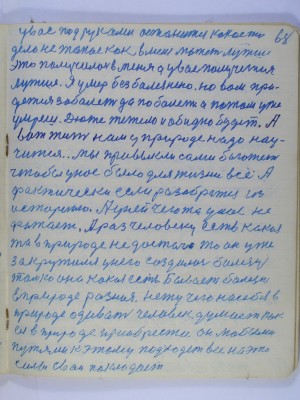 у вас под руками останется какое то 68
дело не такое как в меня может лучше
это получилось в меня а у вас получется
лучше. Я умер без болезнено. но вам при-
дется заболеть да поболеть а потом уже
умереть. Вот тяжело и обидно будет. А
вот жить нам у природе надо нау-
чится... мы привыкли сами богатеть
чтобы у нас было для жизни всё А
фактически если разобратся
историю. А у ней чего то у нас не
хватает. А раз человеку есть какая
та в природе недостача то он уже
закружился у него создалась болезнь
только она какая есть. Бывает болезнь
в природе разная. нету чего на себя в
природе одевать человек думает как
ся в природе приобрести он любыми
путями к этому подходит все на это
силы свои покладает